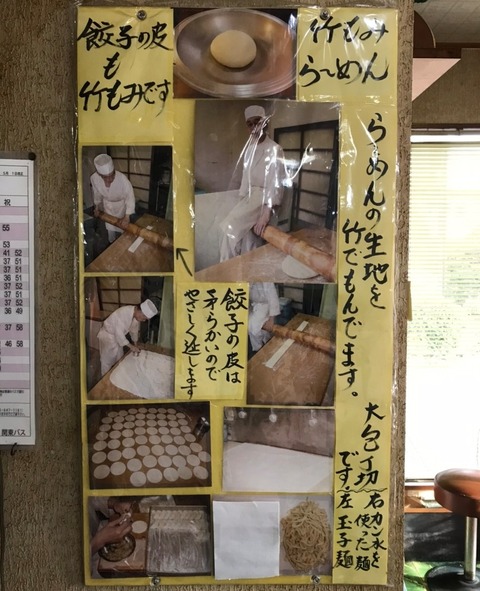 竹もみ
ら〜めん
餃子の皮
も
竹もみです
らーめんの生地を
竹でもんでます。
餃子の皮は
柔らかいので
やさしく延します
大包丁切
右カン水を
使った麺
です。左 玉子麺
祝
55
53
41 52
37 51
36 51
37 52
37 51
37 52
36 49
37 58
46 58
関東バス